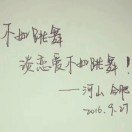 不如跳舞
谈恋爱不如跳舞！
——河山 合肥
2016.9.27